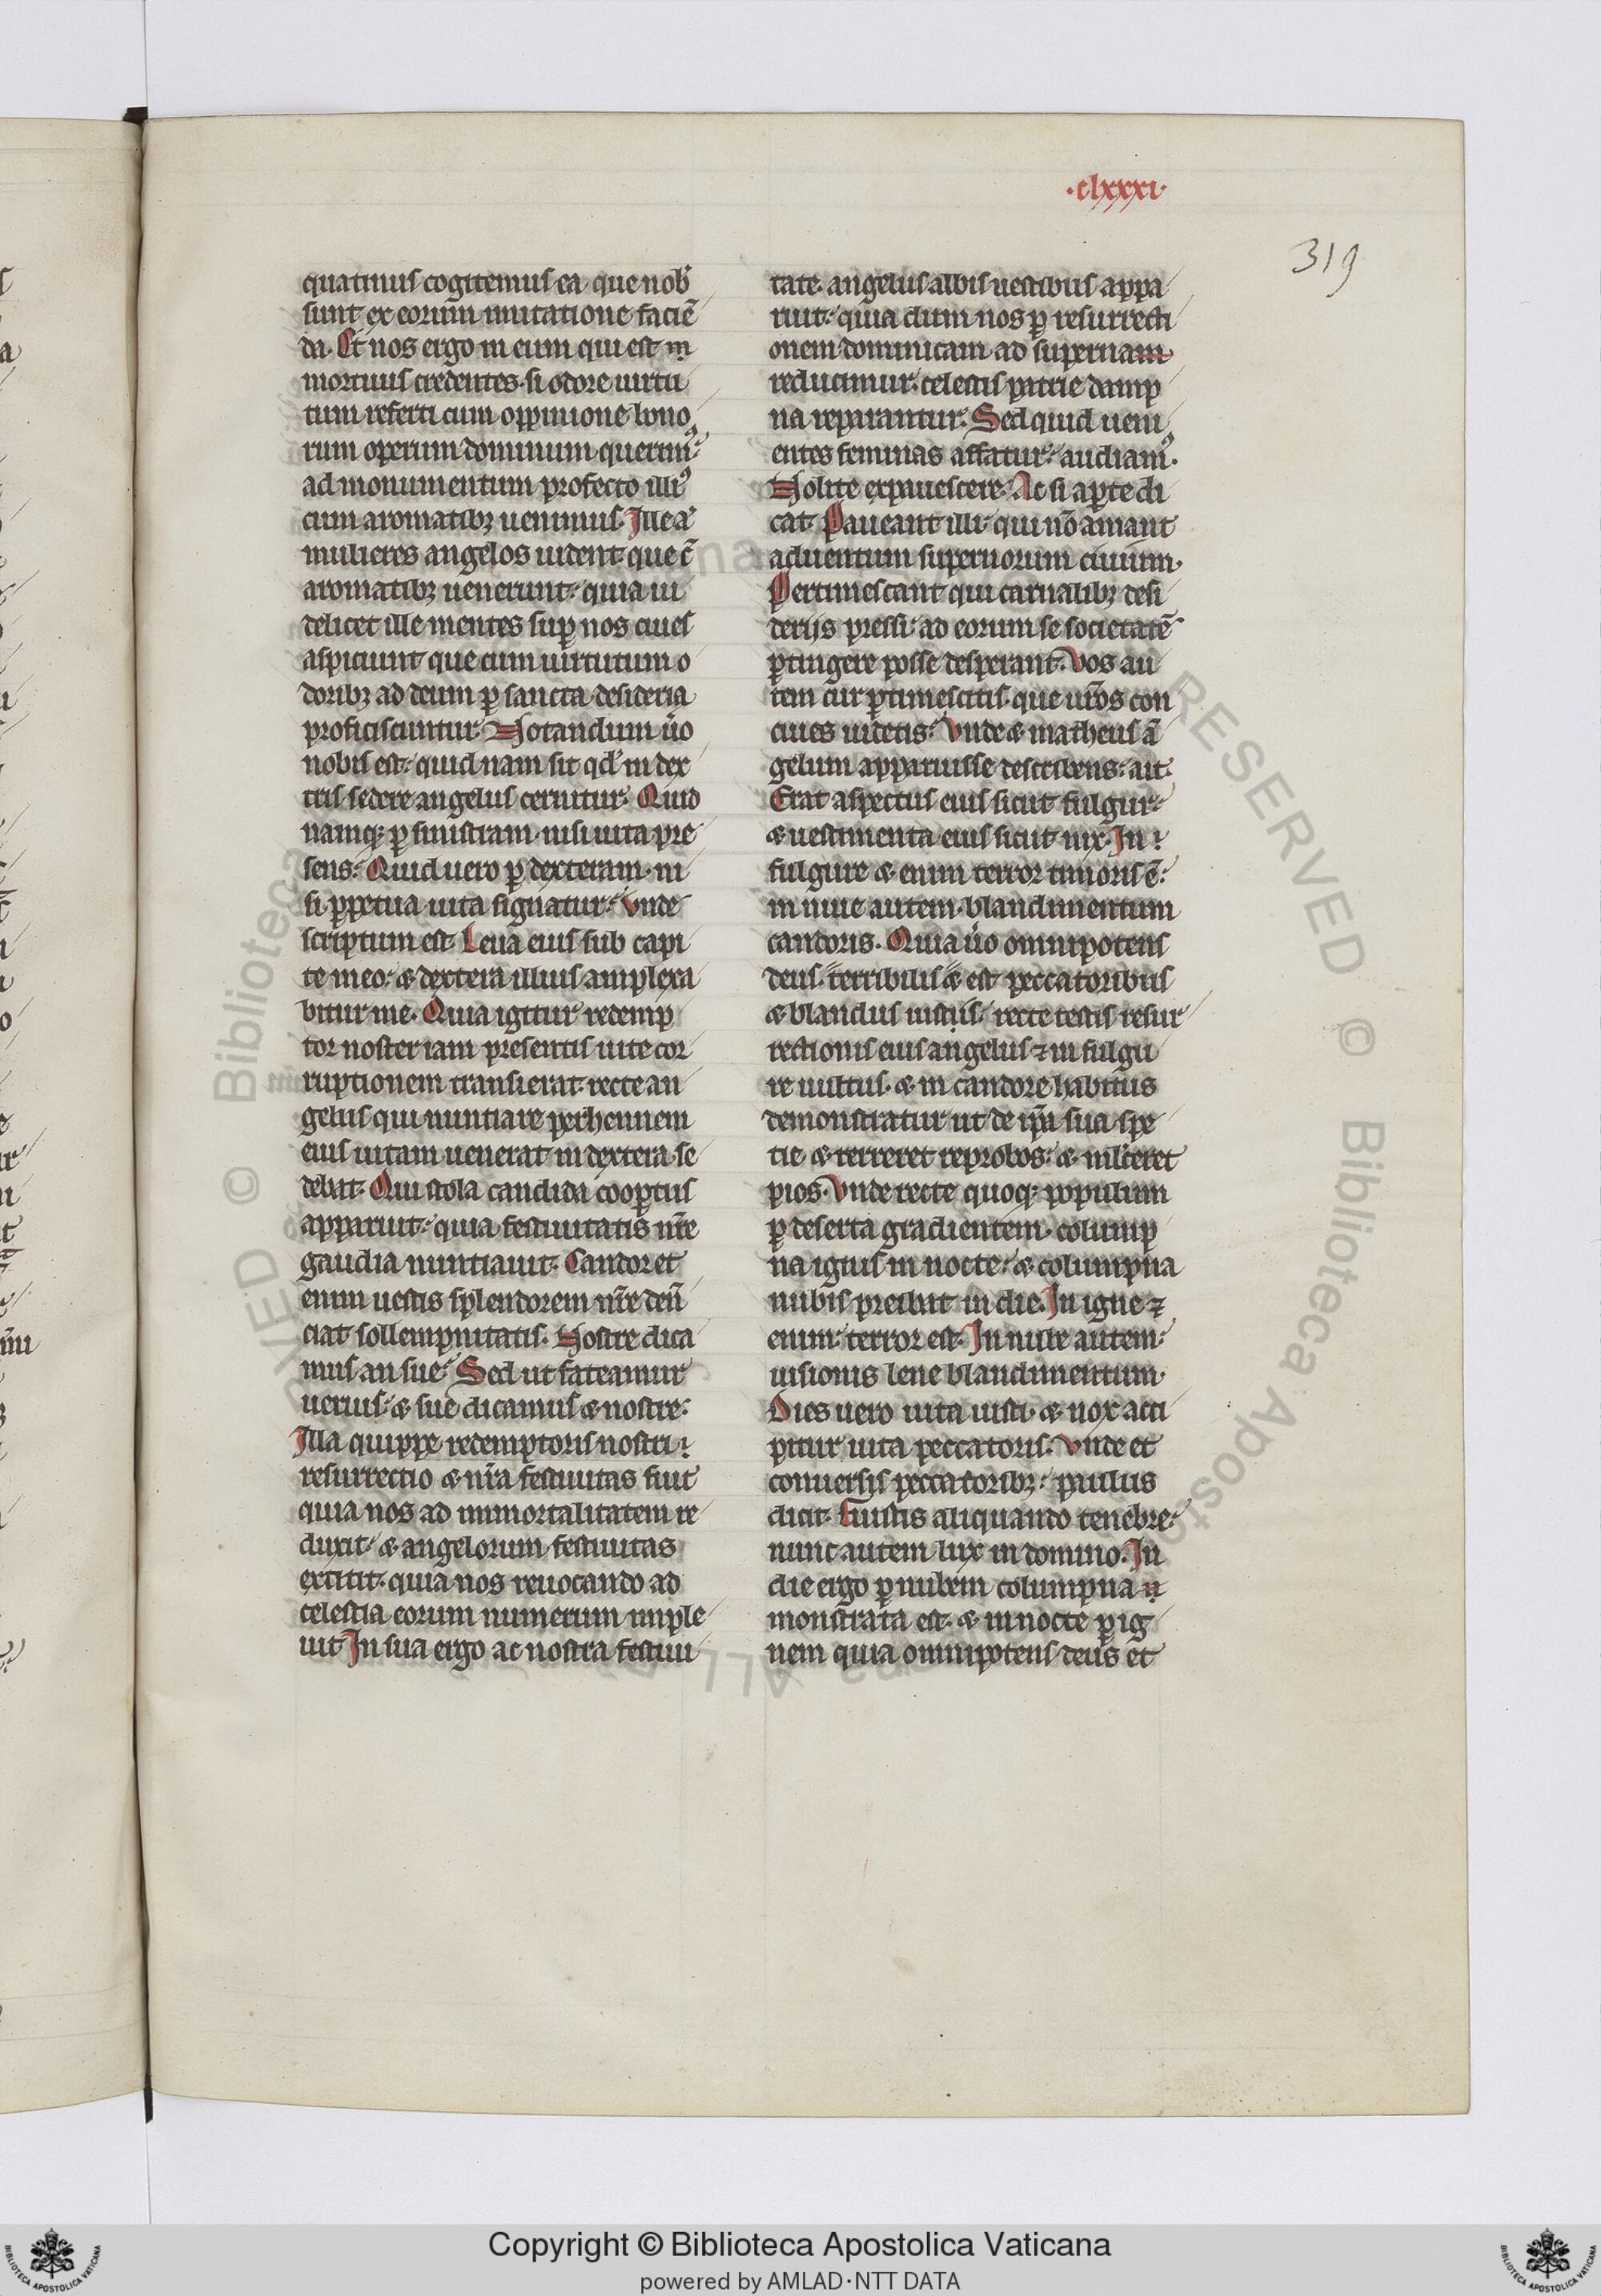 ·clxxxi·
319
quatinus cogitemus ea que nob̾
sunt ex eorum mutatione faciē
da. Et nos ergo in eum qui est in
mortuus credentes. si odore uirtu
tum referti cum oppinione bono
rum operum dominum querim᷒
ad monumentum profecto illi᷒
cum aromatibꝫ uenimus. Ille a᷒
mulieres angelos uident que c̄
aromatibꝫ uenerunt. quia ui
delicet ille mentes suꝑ nos ciues
aspiciunt que cum uirtutum o
doribꝫ ad deum ꝑ sancta desideria
proficiscuntur. Notandum u̾o
nobis est. quid nam sit qd̾ in dex
tris sedere angelus cernitur. Quid
namqꝫ ꝑ sinistram. nisi uita pre
sens. Quid uero ꝑ dexteram. ni
si ꝑpetua uita signatur. Vnde
scriptum est. Leua eius sub capi
te meo. & dextera illius amplexa
bitur me. Quia igitur redemp
tor noster iam presentis uite cor
ruptionem transierat. recte an
gelus qui nuntiare perhennem
eius uitam uenerat in dextera se
debat. Qui stola candida cooꝑtus
apparuit. quia festiuitatis nr̄e
gaudia nuntiauit. Candor et
enim uestis splendorem nr̄e denū
ciat sollempnitatis. Nostre dica
mus an sue. Sed ut fateamur
uerius. & sue dicamus & nostre.
Illa quippe redemptoris nostri
resurrectio & nr̄a festiuitas fuit
quia nos ad immortalitatem re
duxit. & angelorum festiuitas
extitit. quia nos reuocando ad
celestia eorum numerum imple
uit In sua ergo ac nostra festiui
tate. angelus albis uestibus appa
ruit. quia dum nos ꝑ resurrecti
onem dominicam ad supernam
reducimur. celestis patrie damp
na reparantur. Sed quid ueni
entes feminas affatur. audiam᷒.
Nolite expauescere. Ac si aꝑte di
cat. Paueant illi. qui nō amant
aduentum supernorum ciuium.
Pertimescant qui carnalibꝫ desi
derijs pressi. ad eorum se societatē
ꝑtingere posse desperant. Vos au
tem cur ꝑtimescitis. que ur̄os con
ciues uidetis. Vnde & matheus ā
gelum apparuisse describens. ait.
Erat aspectus eius sicut fulgur.
& uestimenta eius sicut nix. In
fulgure & enim terror timoris ē.
in niue autem. blandimentum
candoris. Quia u̾o omnipotens
deus. terribilis & est peccatoribus
& blandus iustis. recte testis resur
rectionis eius angelus ⁊ in fulgu
re uultus. & in candore habitus
demonstratur ut de ip̄a sua spe
tie & terreret reprobos. & mulceret
pios. Vnde recte quoqꝫ populum
ꝑ deserta gradientem. colump
na ignis in nocte. & columpna
nubis preibat in die. In igne ⁊
enim. terror est. In nube autem.
uisionis lene blandimentum.
Dies uero uita iusti. & nox acci
pitur uita peccatoris. Vnde et
conuersis peccatoribꝫ. paulus
dicit. Fuistis aliquando tenebre.
nunc autem lux in domino. In
die ergo ꝑ nubem columpna
monstrata est. & in nocte ꝑ ig
nem quia omnipotens deus et
Copyright © Biblioteca Apostolica Vaticana
powered by AMLAD·NTT DATA